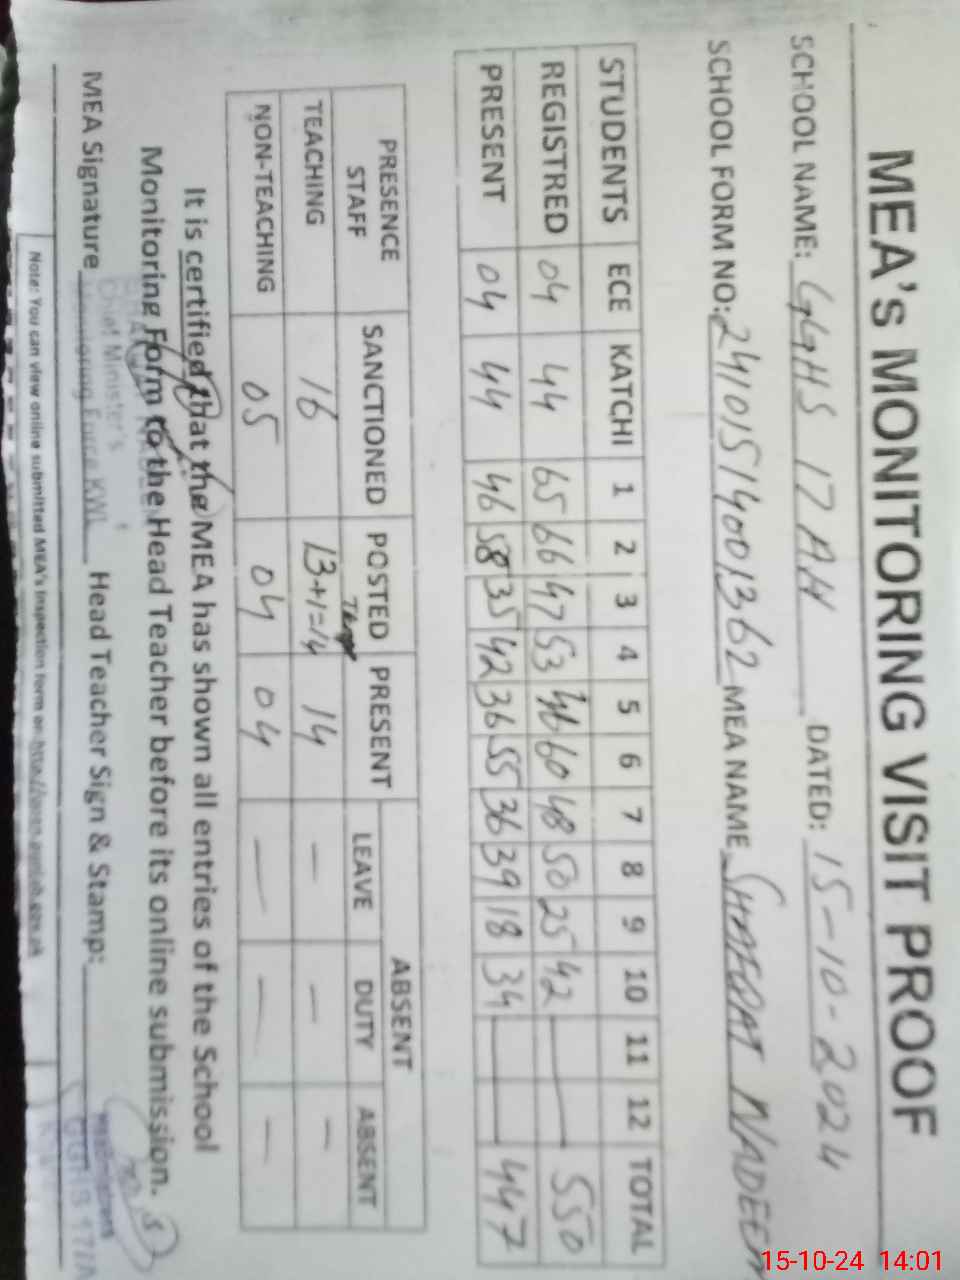 MEA's MONITORING VISIT PROOF
SCHOOL NAME: GGHS 17 AH DATED: 15-10-2024
SCHOOL FORM NO: 24101514001362 MEA NAME SHAFQAT NADEEM
STUDENTS ECE KATCHI 1 2 3 4 5 6 7 8 9 10 11 12 TOTAL
REGISTRED 04 44 65 66 47 53 46 60 48 50 25 42 550
PRESENT 04 44 46 58 35 42 36 55 36 39 18 34 447
PRESENCE STAFF SANCTIONED POSTED PRESENT ABSENT
LEAVE DUTY ABSENT
TEACHING 16 13+1=14 14 — — —
NON-TEACHING 05 04 04 — — —
It is certified that the MEA has shown all entries of the School
Monitoring Form to the Head Teacher before its online submission.
Chief Minister's
Monitoring Force KWL
MEA Signature Head Teacher Sign & Stamp:
Headmistress
GGHS 17/A
Note: You can view online submitted MEA's inspection form on
15-10-24 14:01